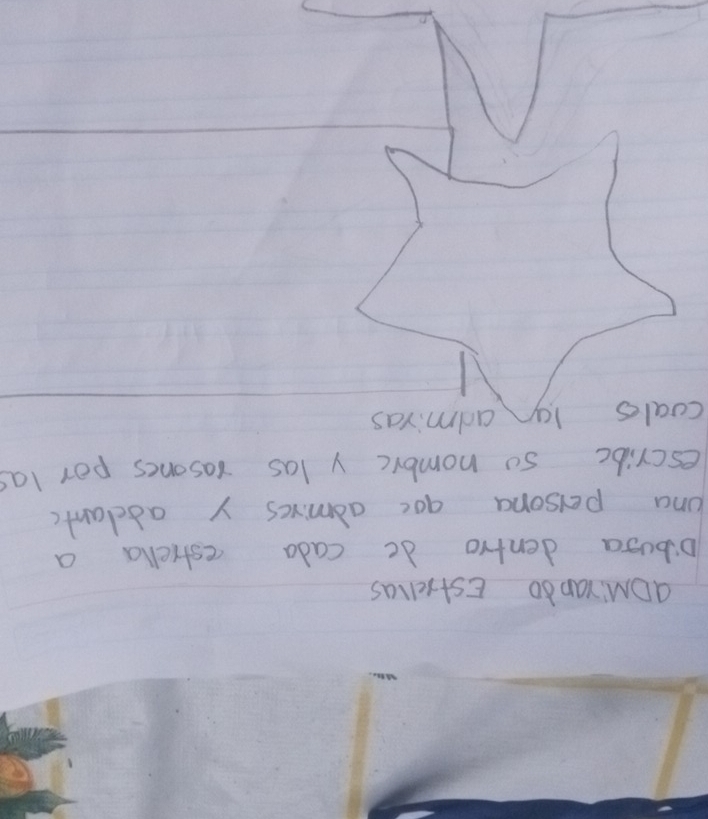 aDMirando Estrellas
Dibuja dentro de cada estrella a
una persona que admires y adelante
escribe su nombre y las rasones por las
cuales la admiras